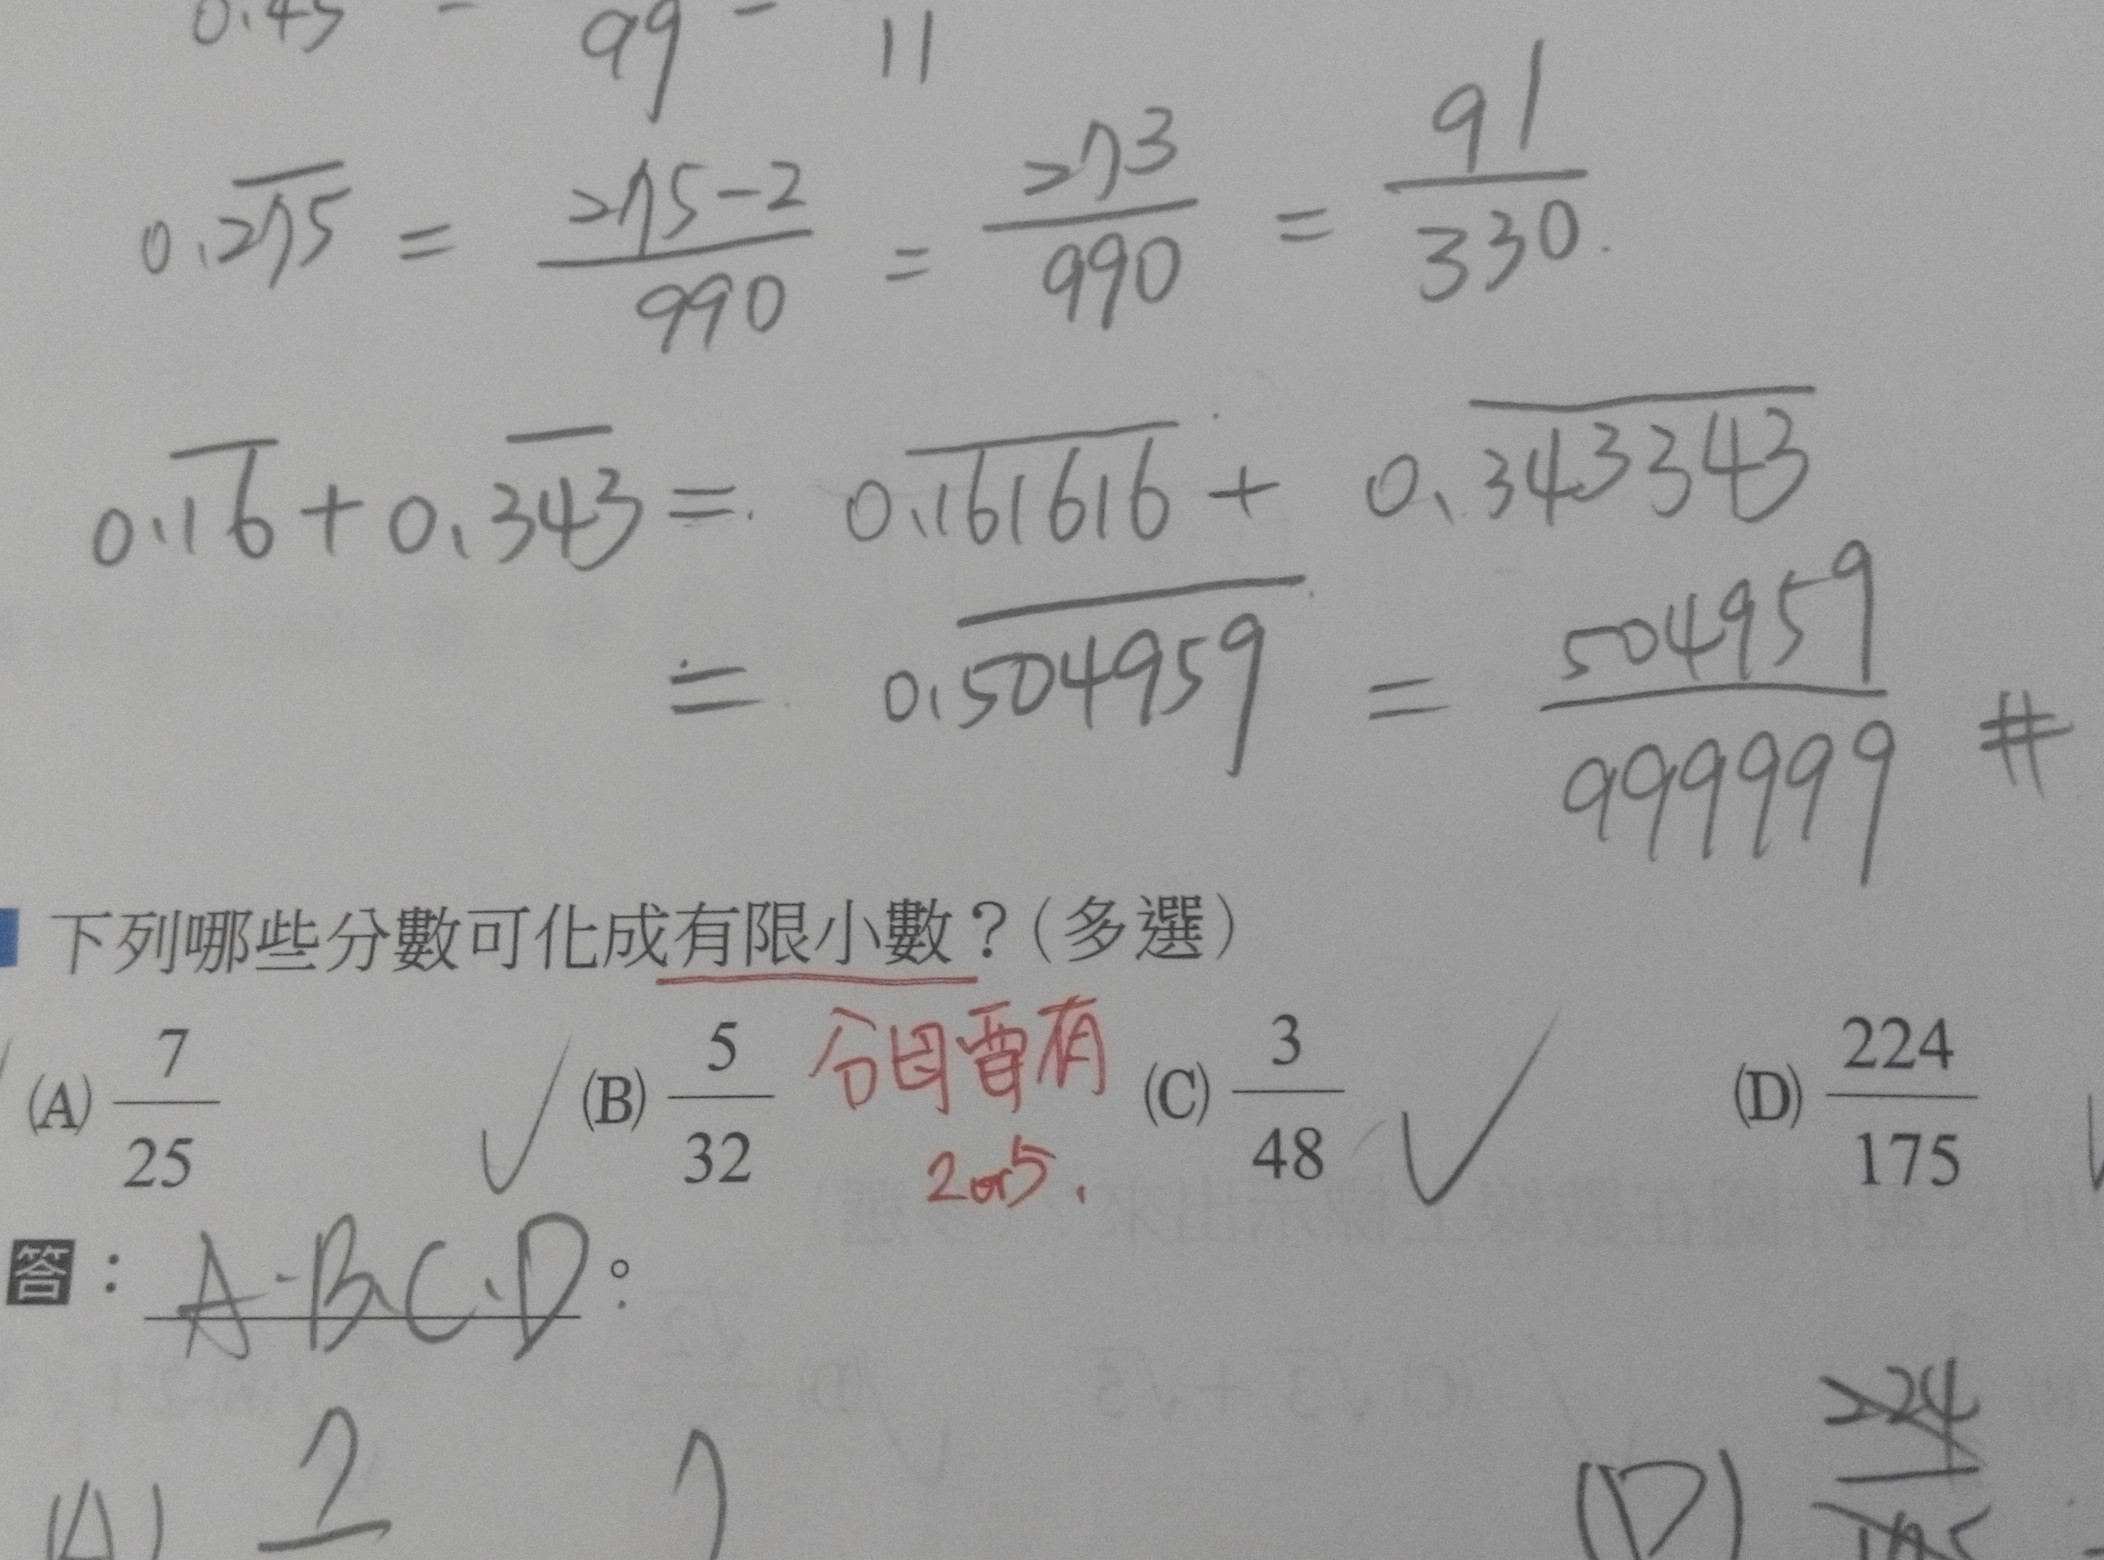 0.45 = 99 = 11
0.275 = 275-2 / 990 = 273 / 990 = 91 / 330
0.16 + 0.343 = 0.161616 + 0.343343
= 0.504959 = 504959 / 999999 #
下列哪些分數可化成有限小數？（多選）
(A) 7/25 (B) 5/32 (C) 3/48 (D) 224/175
分母要有
2or5.
答：A、B、C、D。
(A) 7 7 (D) 224
175